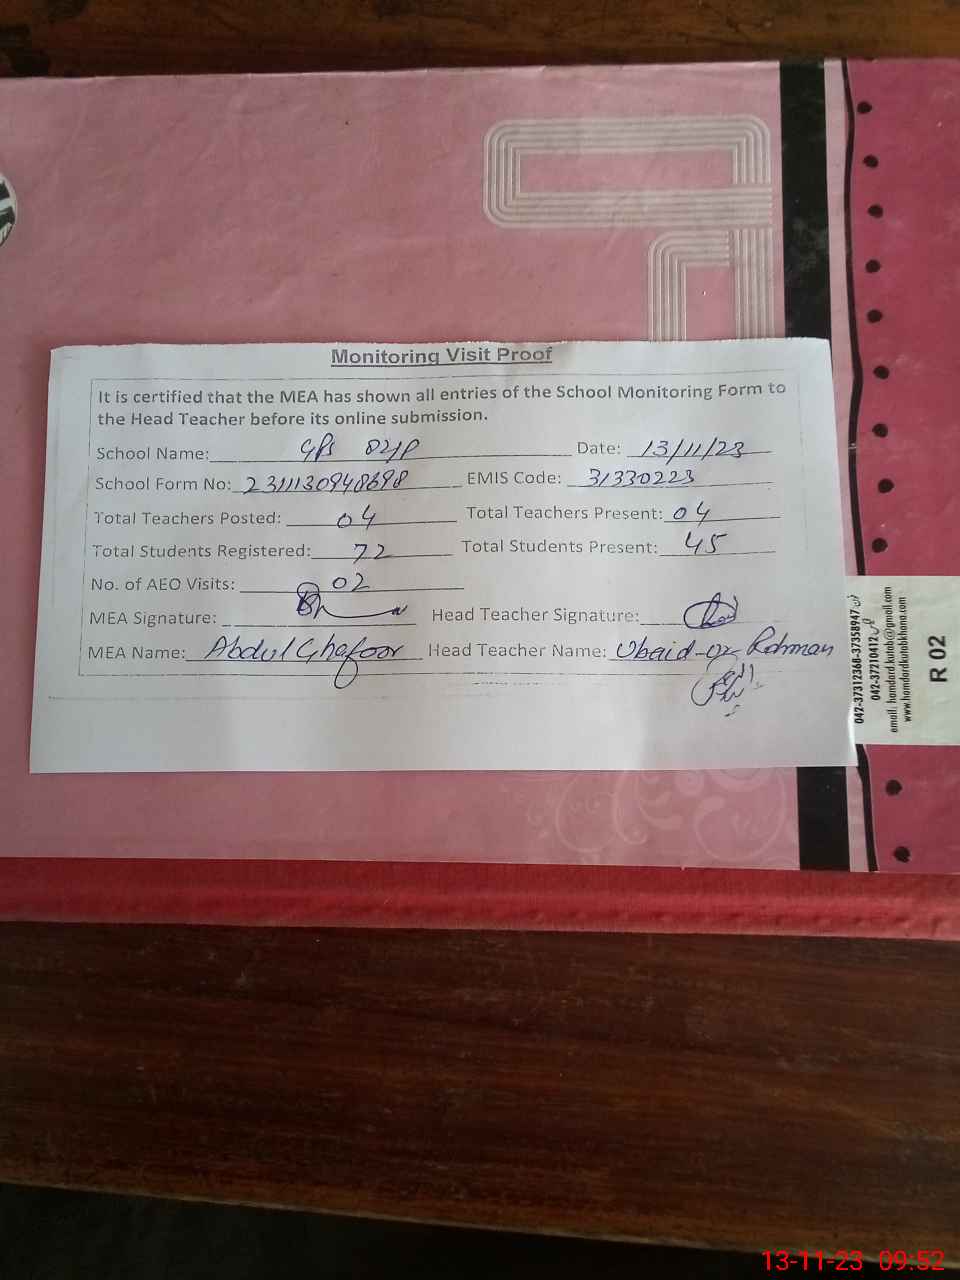 Monitoring Visit Proof
It is certified that the MEA has shown all entries of the School Monitoring Form to
the Head Teacher before its online submission.
School Name: GPS 82/P Date: 13/11/23
School Form No: 2311130948698 EMIS Code: 31330223
Total Teachers Posted: 04 Total Teachers Present: 04
Total Students Registered: 72 Total Students Present: 45
No. of AEO Visits: 02
MEA Signature: Head Teacher Signature:
MEA Name: Abdul Ghafoor Head Teacher Name: Ubaid-ur-Rahman
042-37312368-37358947
042-37210412
email: hamdard.kutab@gmail.com
www.hamdardkutabkhana.com
R 02
13-11-23 09:52